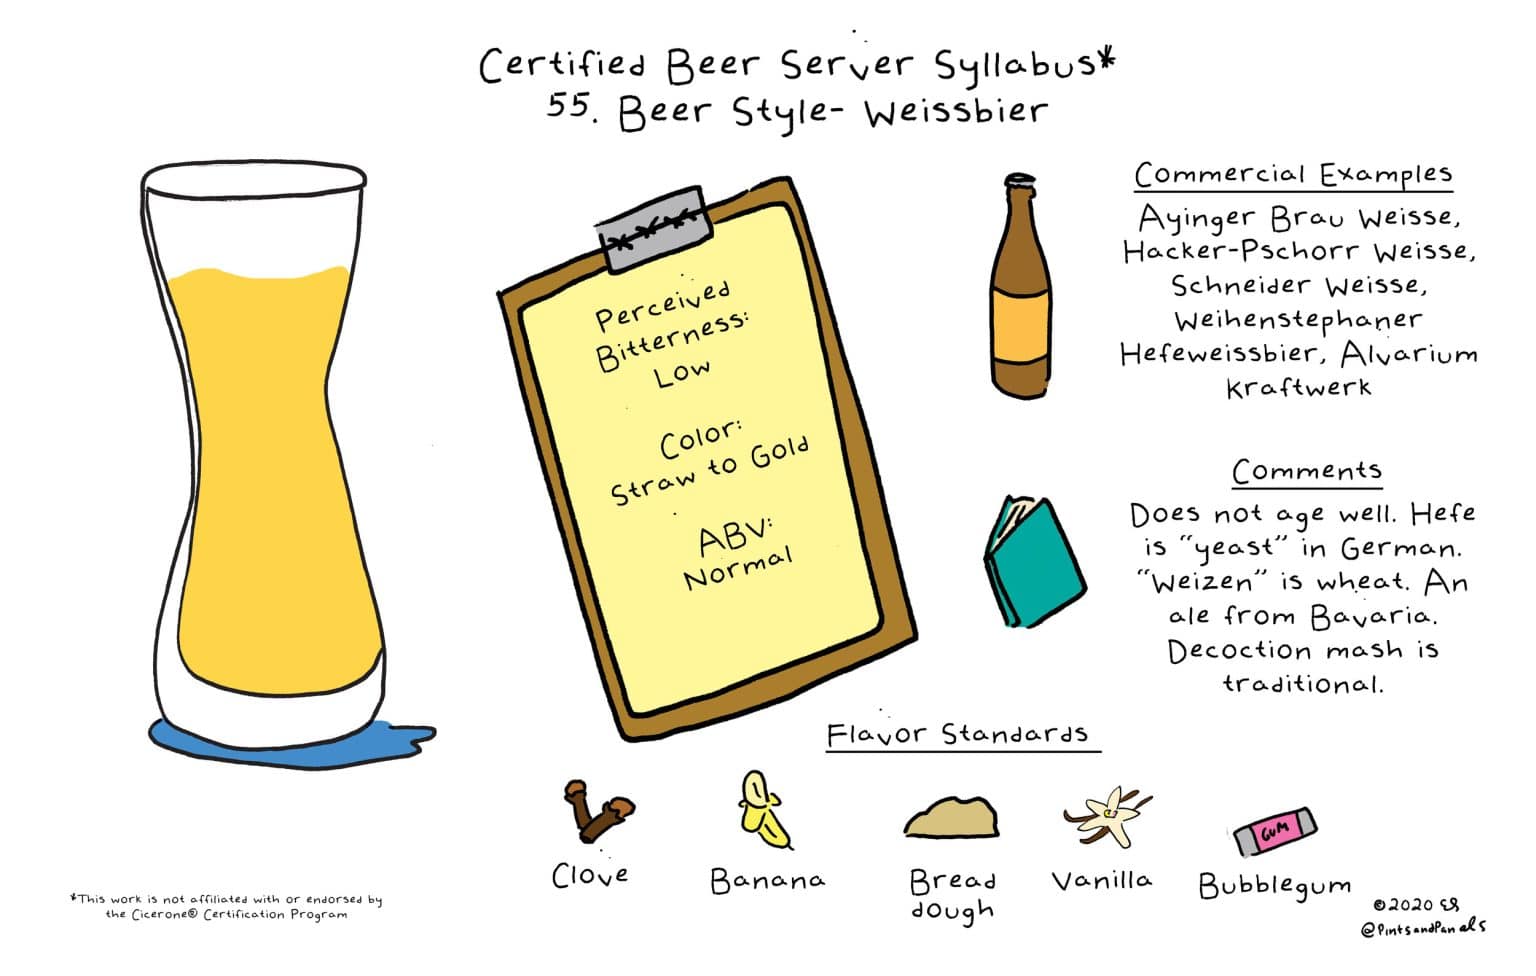 Certified Beer Server Syllabus*
55. Beer Style- Weissbier
Perceived
Bitterness:
Low
Color:
Straw to Gold
ABV:
Normal
Commercial Examples
Ayinger Brau Weisse,
Hacker-Pschorr Weisse,
Schneider Weisse,
Weihenstephaner
Hefeweissbier, Alvarium
Kraftwerk
Comments
Does not age well. Hefe
is "yeast" in German.
"Weizen" is wheat. An
ale from Bavaria.
Decoction mash is
traditional.
Flavor Standards
GUM
Clove
Banana
Bread
dough
Vanilla
Bubblegum
*This work is not affiliated with or endorsed by
the Cicerone® Certification Program
©2020 ES
@PintsandPanels